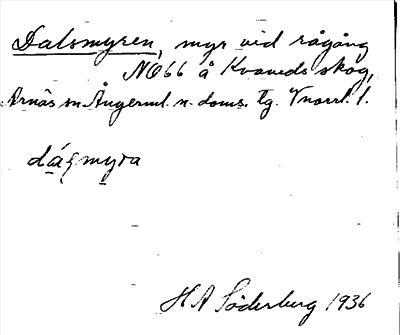 Dalsmyren, myr vid rågång
NO66 å Kvaveds skog,
Arnäs sn Ångerml. n. doms. tg. V norrl. l.
dáꞔmyra
H A Söderberg 1936